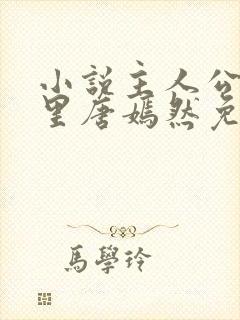 小說主人公
里唐嫣然免
馬學玲